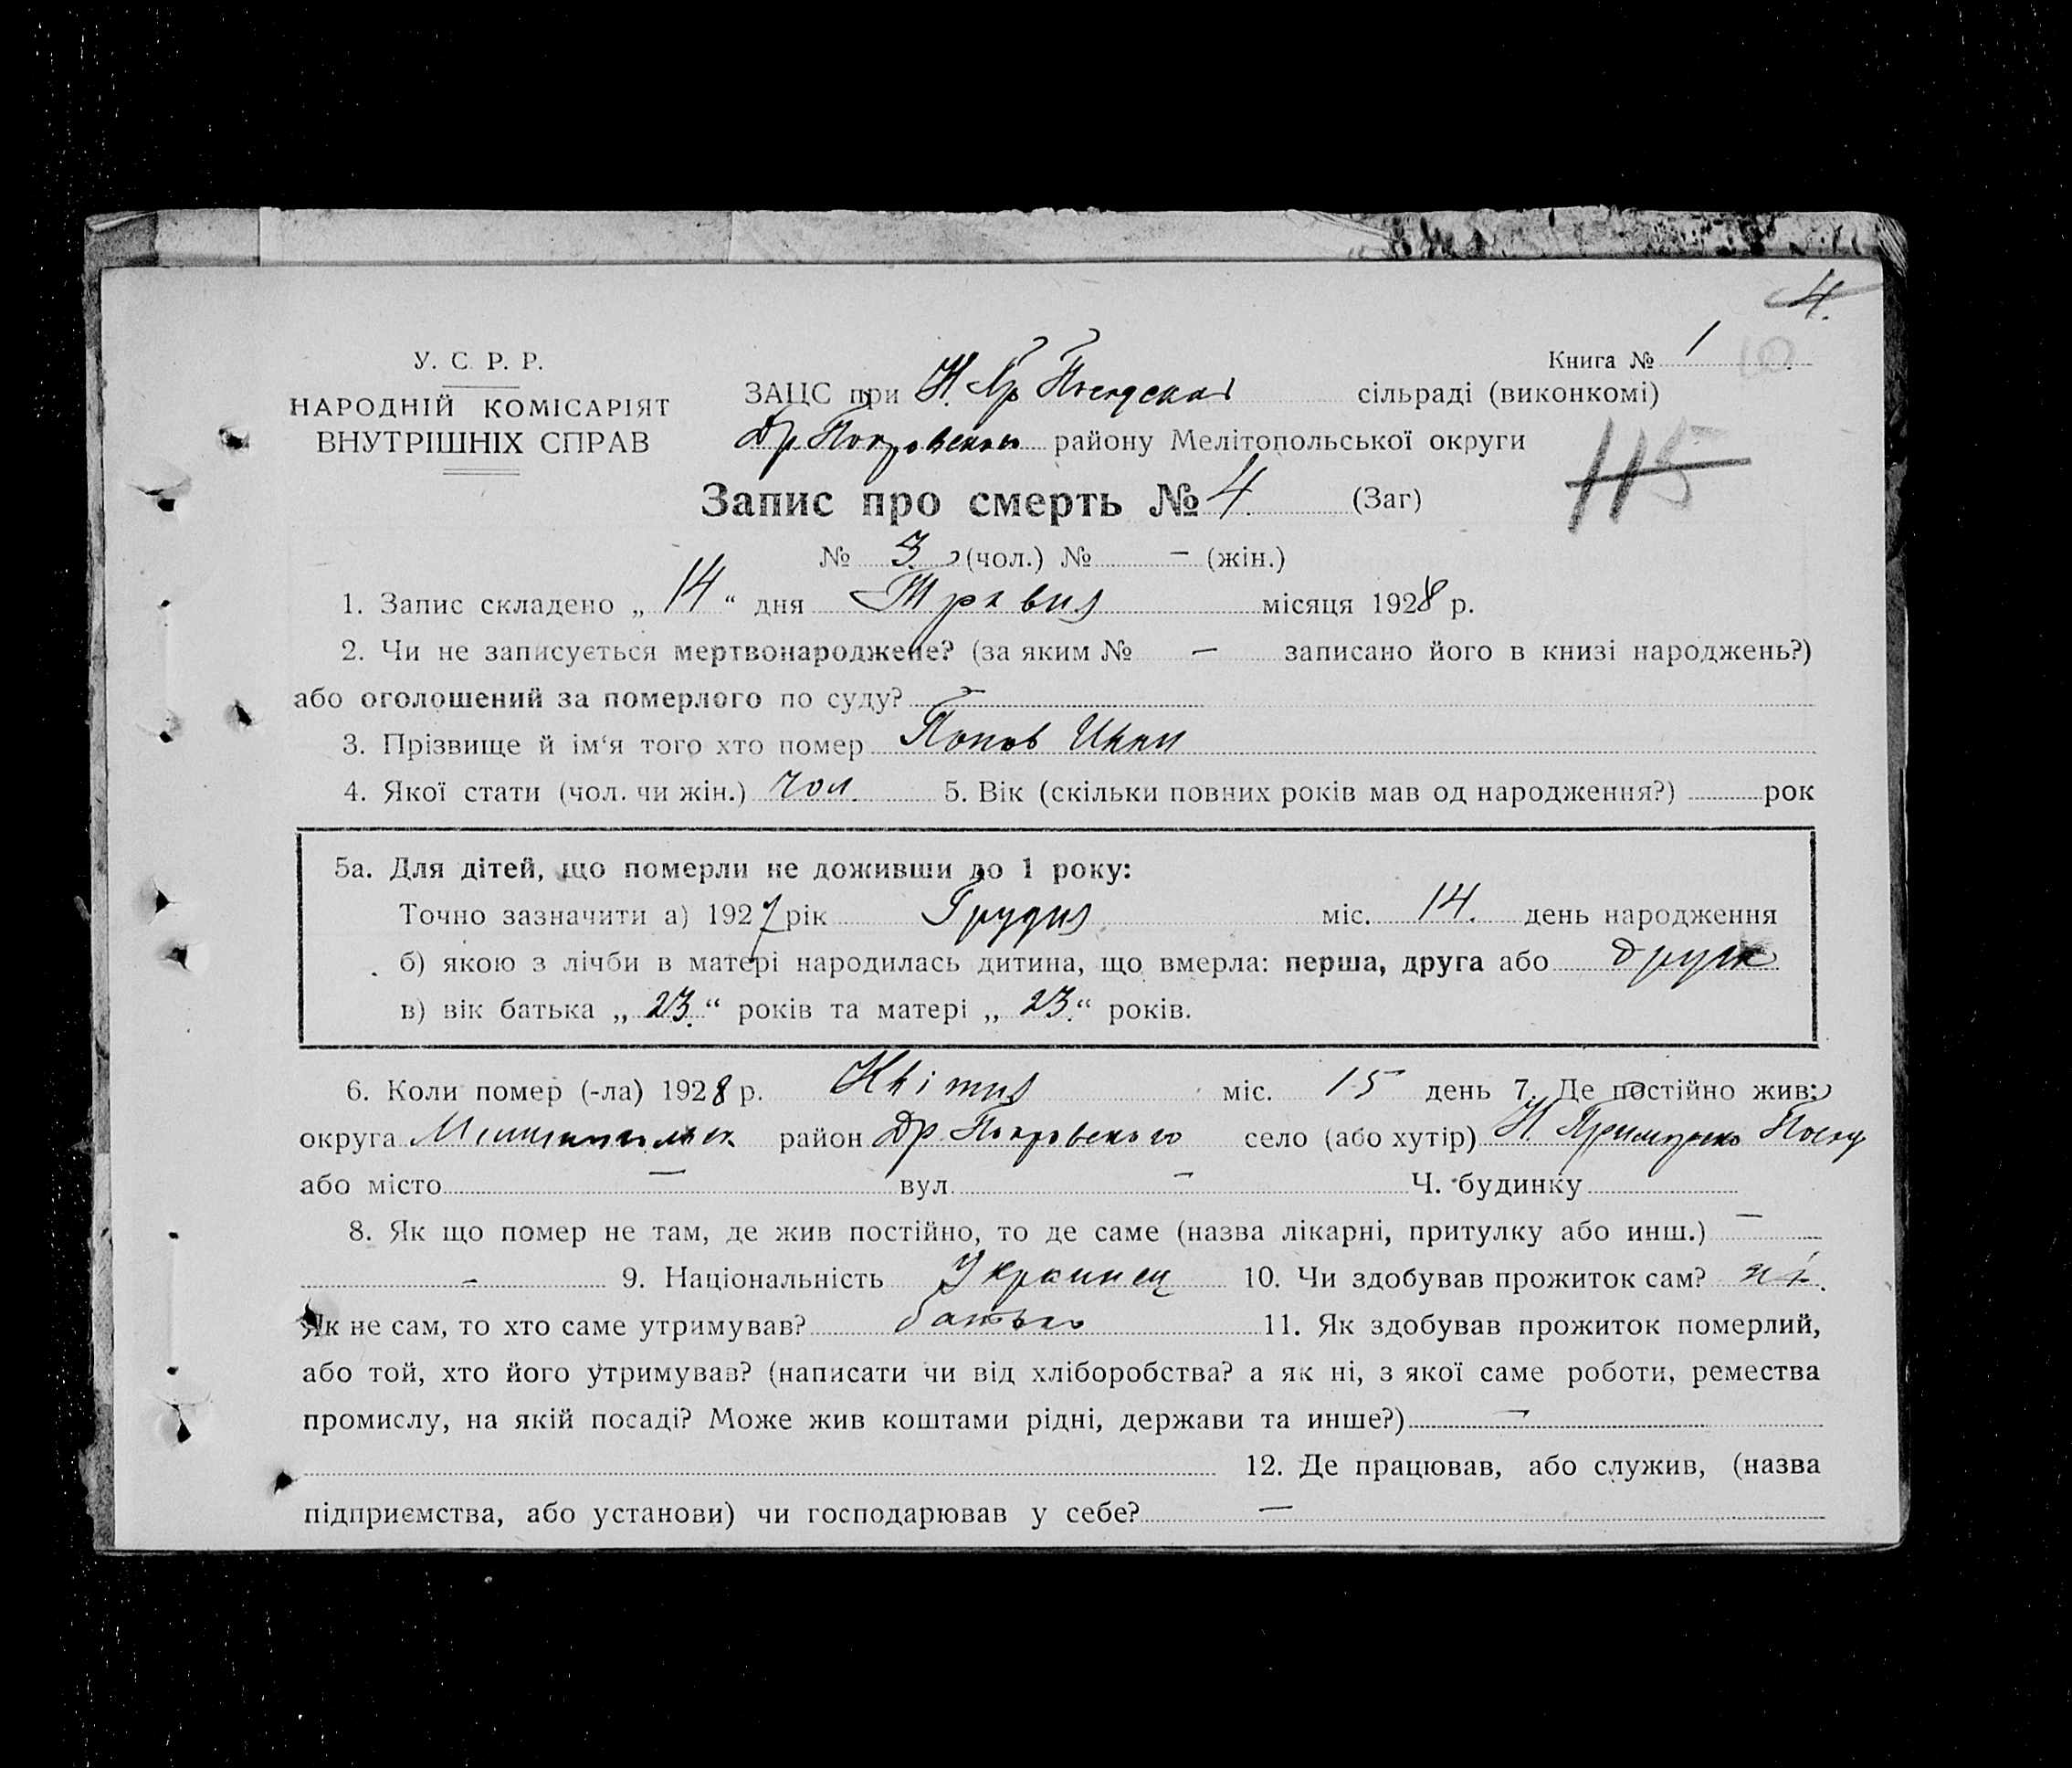 4.
У. С. Р. Р.
НАРОДНІЙ КОМІСАРІЯТ
ВНУТРІШНІХ СПРАВ
Книга № 1
ЗАЦС при Н. Пр сільраді (виконкомі)
Др Покровського району Мелітопольської округи
115
Запис про смерть № 4. (Заг)
№ 3 (чол.) № – (жін.)
1. Запис складено „ 14 “ дня Травня місяця 1928 р.
2. Чи не записується мертвонароджене? (за яким № – записано його в книзі народжень?)
або оголошений за померлого по суду? –
3. Прізвище й ім‘я того хто помер Попов Иван
4. Якої стати (чол. чи жін.) чол. 5. Вік (скільки повних років мав од народження?) рок
5а. Для дітей, що померли не доживши до 1 року:
Точно зазначити а) 1927 рік Грудня міс. 14. день народження
б) якою з лічби в матері народилась дитина, що вмерла: перша, друга або друга
в) вік батька „ 23. “ років та матері „ 23. “ років.
6. Коли помер (-ла) 1928 р. Квітня міс. 15 день 7. Де постійно жив:
округа район Др. Покровського село (або хутір) Н.
або місто – вул. – Ч. будинку
8. Як що помер не там, де жив постійно, то де саме (назва лікарні, притулку або инш.) –
– 9. Національність Украинец 10. Чи здобував прожиток сам? ні.
Як не сам, то хто саме утримував? батько 11. Як здобував прожиток померлий,
або той, хто його утримував? (написати чи від хліборобства? а як ні, з якої саме роботи, ремества
промислу, на якій посаді? Може жив коштами рідні, держави та инше?) –
12. Де працював, або служив, (назва
підприємства, або установи) чи господарював у себе? –